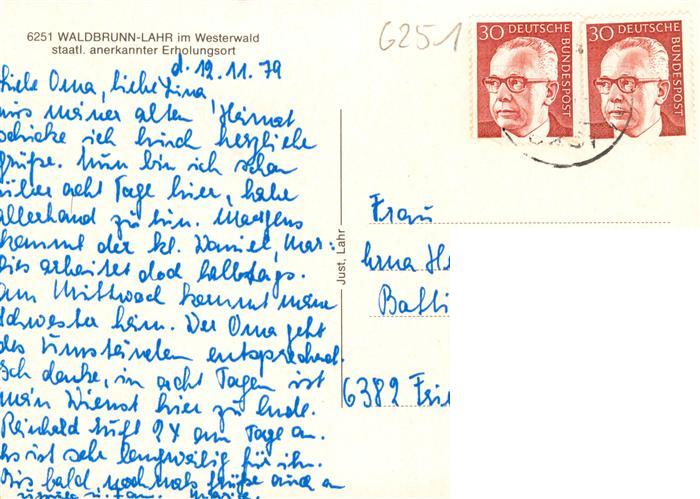 6251 WALDBRUNN-LAHR im Westerwald
staatl. anerkannter Erholungsort
6251
30 DEUTSCHE BUNDESPOST
30 DEUTSCHE BUNDESPOST
d. 12.11.79
Liebe Oma, liebe
aus meiner alten Heimat
schicke ich Euch herzliche
Grüße. Nun bin ich schon
über acht Tage hier, habe
allerhand zu tun. Morgens
kommt der kl. Daniel, Mar-
arbeitet doch halbtags.
Am Mittwoch kommt meine
Schwester heim. Der Oma geht
des Umständen entsprechend.
Ich denke, in acht Tagen ist
mein Dienst hier zu Ende.
Reinhold ruft 2X am Tage an.
Es ist sehr langweilig für ihn.
Bis bald, nochmals Grüße auch an
u. Fam.
Just, Lahr
Frau
Erna
6382